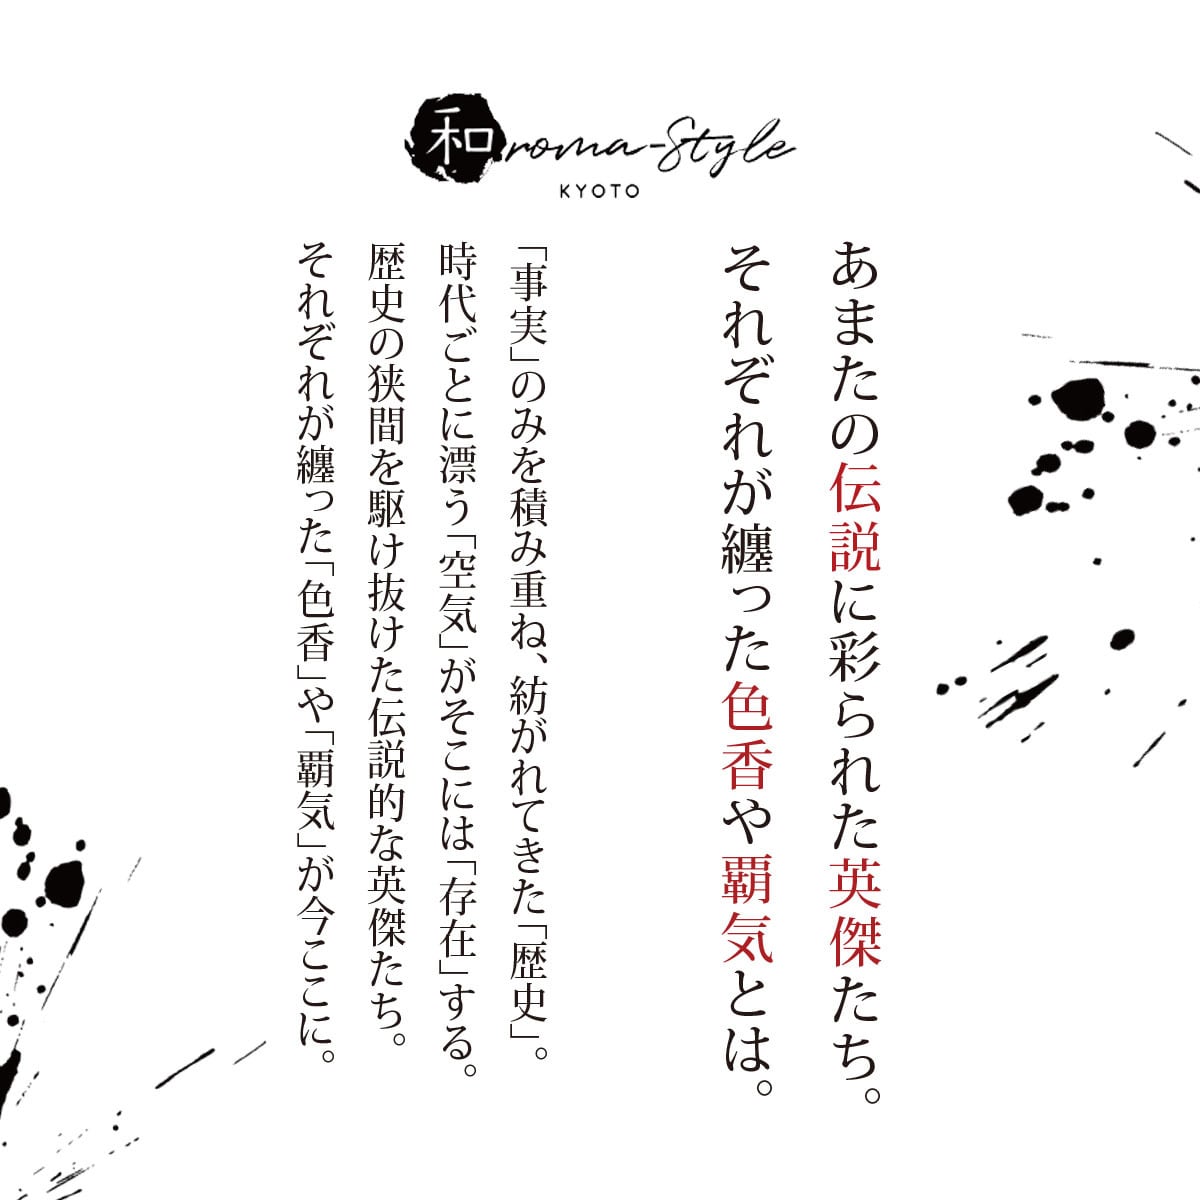 和roma-Style
KYOTO
あまたの伝説に彩られた英傑たち。
それぞれが纏った色香や覇気とは。
「事実」のみを積み重ね、紡がれてきた「歴史」。
時代ごとに漂う「空気」がそこには「存在」する。
歴史の狭間を駆け抜けた伝説的な英傑たち。
それぞれが纏った「色香」や「覇気」が今ここに。